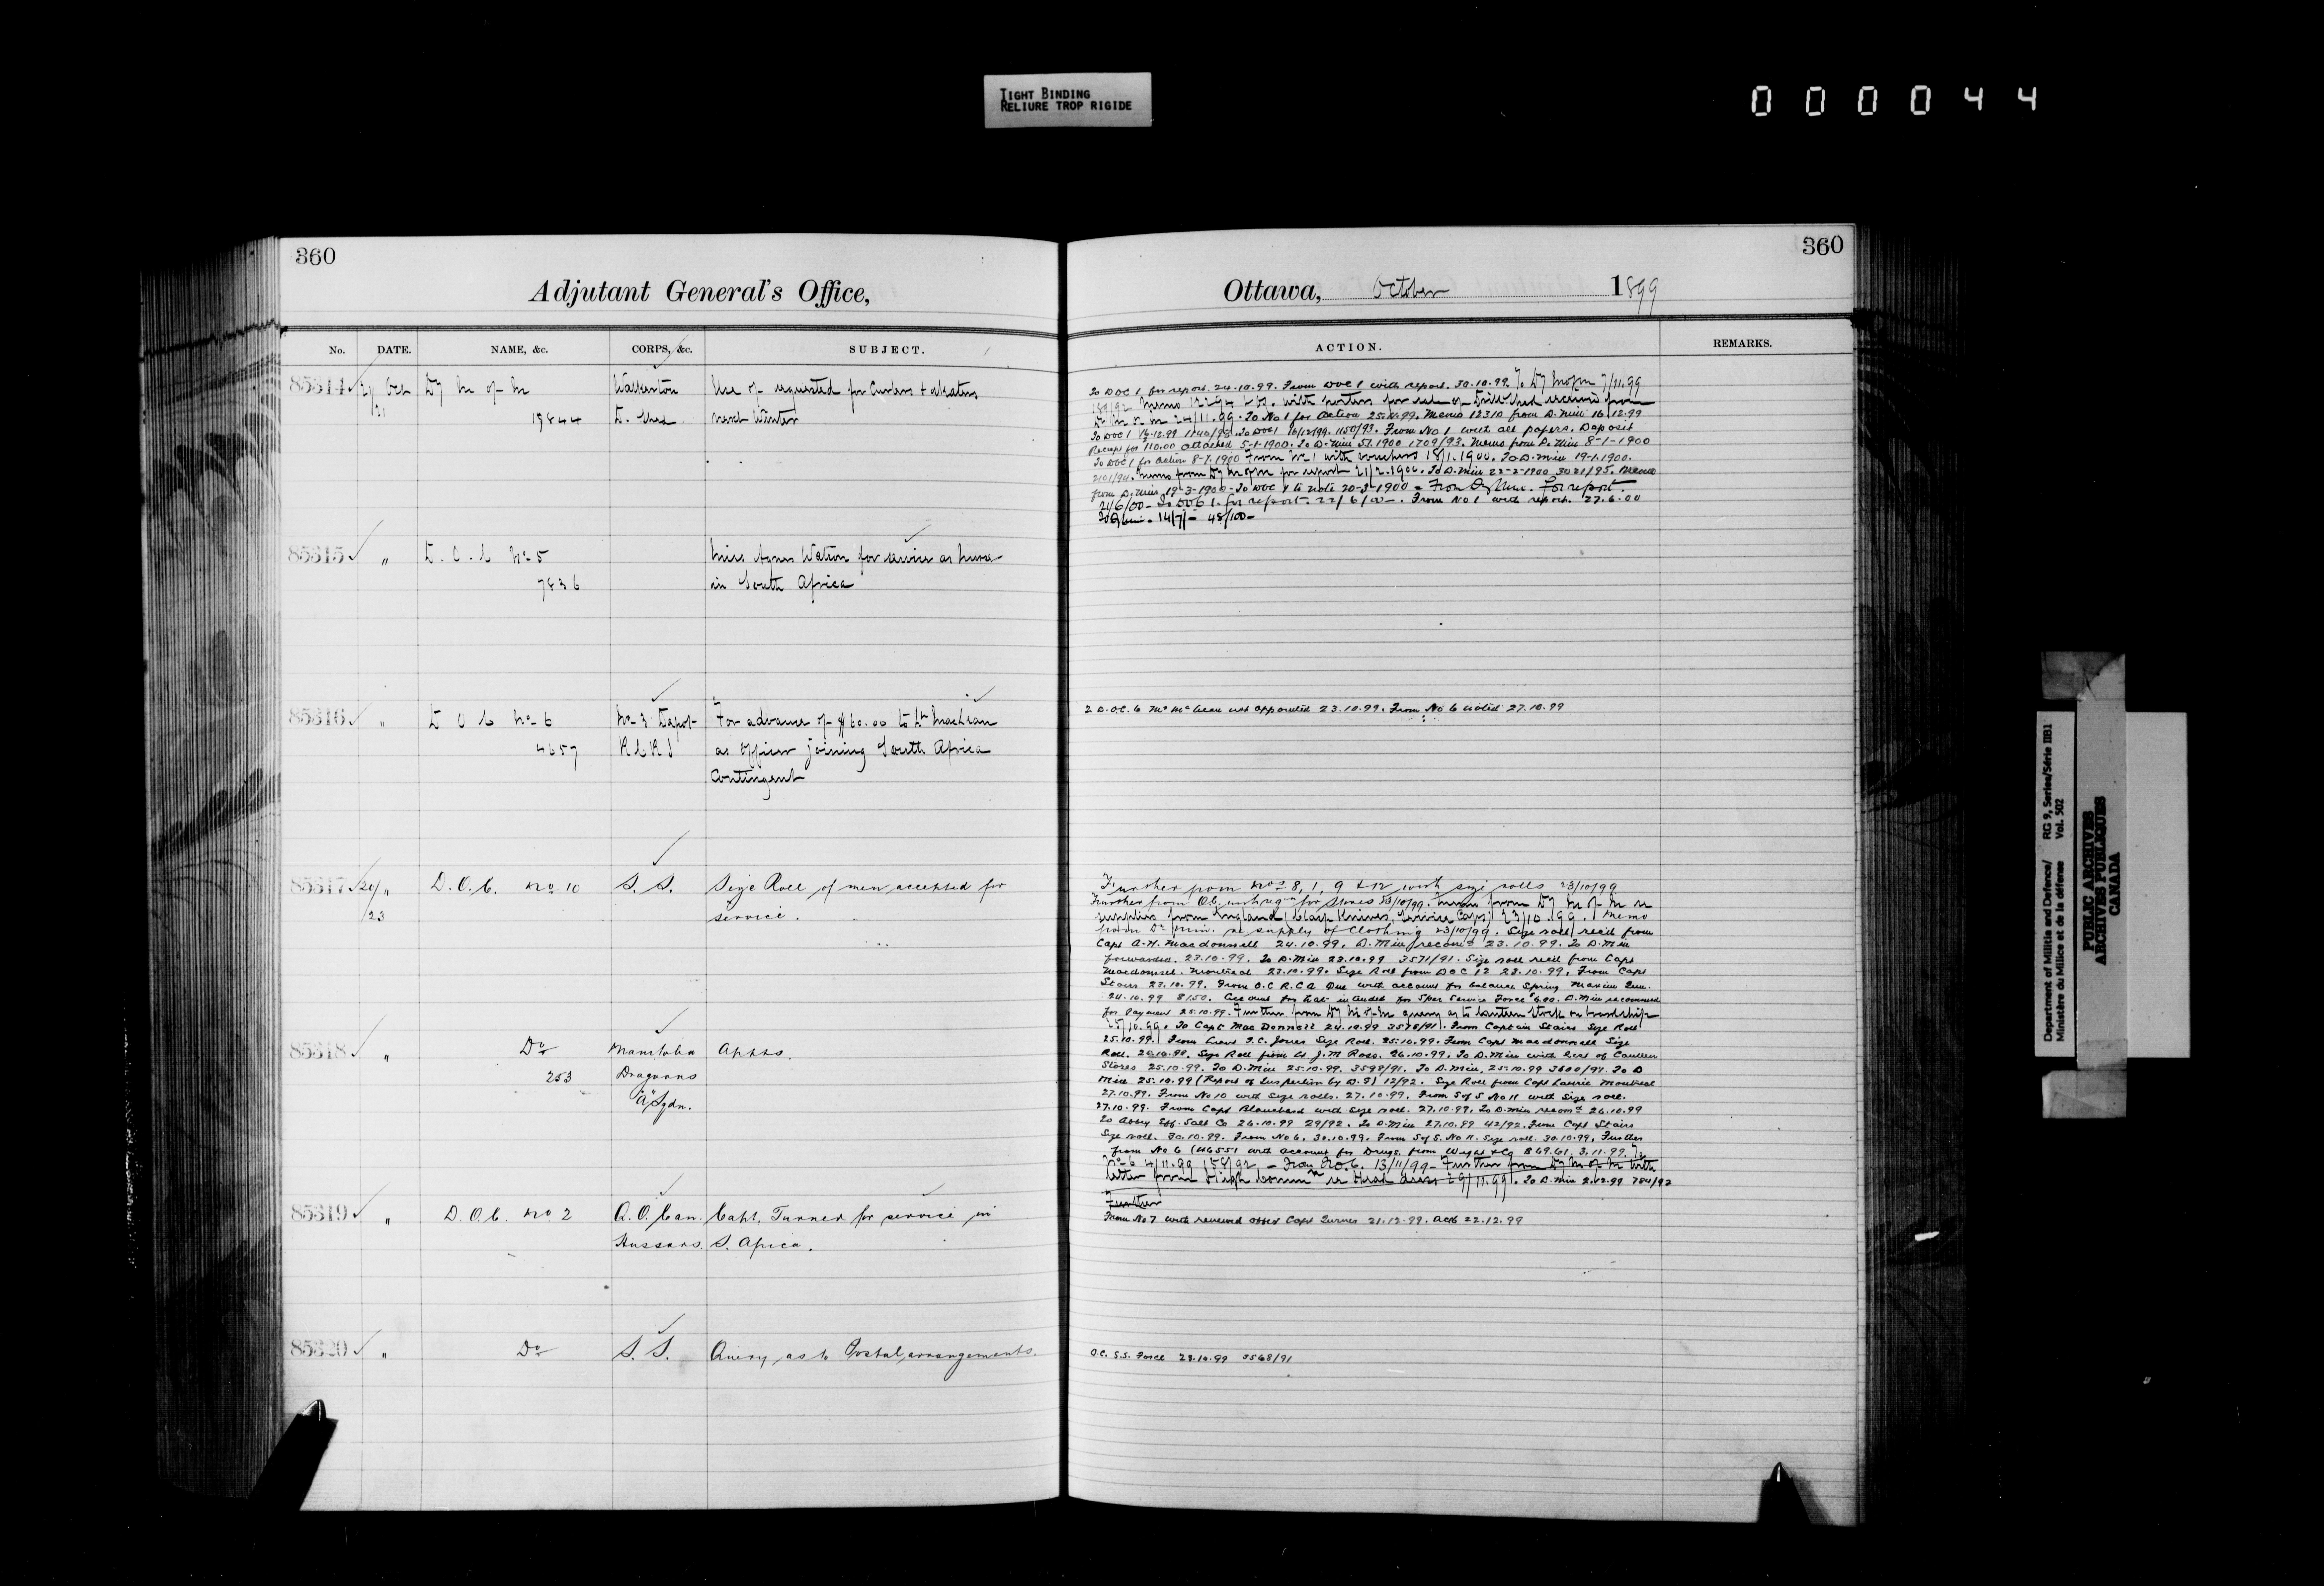 TIGHT BINDING
RELIURE TROP RIGIDE
0 0 0 0 4 4
360
Adjutant General's Office,
No. DATE. NAME, &c. CORPS, &c. SUBJECT.
85314 21 Oct Dy M of M Walkerton Use of requested for Curlers & Skaters
/21 19844 D. Shed next Winter
85315 " D. O. C No 5 Miss Agnes Watson for service as nurse
7836 in South Africa
85316 " D O C No 6 No 3 Depot For advance of $60.00 to Lt MacLean
4657 R C R I as Officer joining South Africa
Contingent
85317 20/ " D.O.C. No 10 S. S. Size Roll of men accepted for
/23 service.
85318 " Do Manitoba Appts.
253 Dragoons
"A" Sqdn.
85319 " D.O.C. No 2 Q.O. Can. Capt. Turner for service in
Hussars. S. Africa.
85320 " Do S. S. Query as to Postal arrangements.
360
Ottawa, October 1899
ACTION. REMARKS.
To DOC 1 for report. 24.10.99. From DOC 1 with report. 30.10.99. To Dy M of M 7/11.99
Memo with for use of Drill Shed received from
24/11.99. To No 1 for action 25.11.99. Memo 12310 from D. Min 16.12.99
To DOC 1 16.12.99 1140/93. To DOC 1 16/12/99. 1150/93. From No 1 with all papers. Deposit
Receipt for 110.00 attached 5-1-1900. To D. Min 5.1.1900 1709/93. Memo from D. Min 8-1-1900
To DOC 1 for action 8-1.1900 From No 1 with vouchers 18/1.1900. To D. Min 19.1.1900.
2101/94. Memo from Dy M of M for report 21/2.1900. To D. Min 22-2-1900 3021/95. Memo
from D. Min 19-3-1900 - To DOC 1 to note 20-3-1900 - From Dy Min. For report.
21/6/00 - To DOC 1. for report. 22/6/00 -. From No 1 with report. 27.6.00
14/7/- 48/100-
D.O.C. 6 Mr McLean not appointed 23.10.99. From No 6 noted 27.10.99
Further from Nos 8, 1, 9 & 12 with size rolls 23/10/99
Further from O.C. with reqn for Stores 23/10/99. Memo from Dy M of M re
supplies from England (Clasp Knives, Service Caps) 23/10.99. Memo
from Dr Min. re supply of Clothing 23/10/99. Size roll recd from
Capt A.H. Macdonnell 24.10.99. D. Min recomd 23.10.99. To D. Min
forwarded. 23.10.99. To D. Min 23.10.99 3571/91. Size roll recd from Capt
Macdonnell. Montreal 23.10.99. Size Roll from DOC 12 23.10.99. From Capt
Stairs 23.10.99. From O.C R.C.A Que with account for balance Spring Maxim Gun.
24.10.99 81.50. Account for intended for Spec Service Force $6.00. D. Min recommend
for payment 25.10.99. Further from Dy M of M query as to Canteen Stock on troopship
25/10.99. To Capt MacDonnell 24.10.99 3578/91. From Captain Stairs Size Roll
25.10.99. From S.C. Jones Size Roll. 25.10.99. From Capt Macdonnell Size
Roll. Size Roll from Lt J.M Ross. 26.10.99. To D. Min with list of Canteen
Stores 25.10.99. To D. Min 25.10.99. 3598/91. To D. Min. 25.10.99 3600/91. To D
Min 25.10.99 (Report of Inspection by D.G) 12/92. Size Roll from Capt Laurie Montreal
27.10.99. From No 10 with size rolls. 27.10.99. From S of S No 11 with size roll.
27.10.99. From Capt Blanchard with size roll. 27.10.99. To D. Min recomd 26.10.99
To Abbey Eff. Salt Co 26.10.99 29/92. To D. Min 27.10.99 42/92. From Capt Stairs
Size roll. 30.10.99. From No 6. 30.10.99. From S of S. No 11. Size roll. 30.10.99. Further
from No 6 (4655) with account for Drugs from & Co $69.61. 3.11.99. To
No 6 4/11.99 158/92 - From No. 6. 13/11/99 - Further from Dy M of M with
letter from High Commr re Head dress 29/11.99. To D. Min 2.12.99 784/92
Further
From No 7 with renewed offer Capt Turner 21.12.99. Ack 22.12.99
O.C. S.S. Force 23.10.99 3568/91
Department of Militia and Defence/ RG 9, Series/Série IIB1
Ministère du Milice et de la défense Vol. 502
PUBLIC ARCHIVES
ARCHIVES PUBLIQUES
CANADA